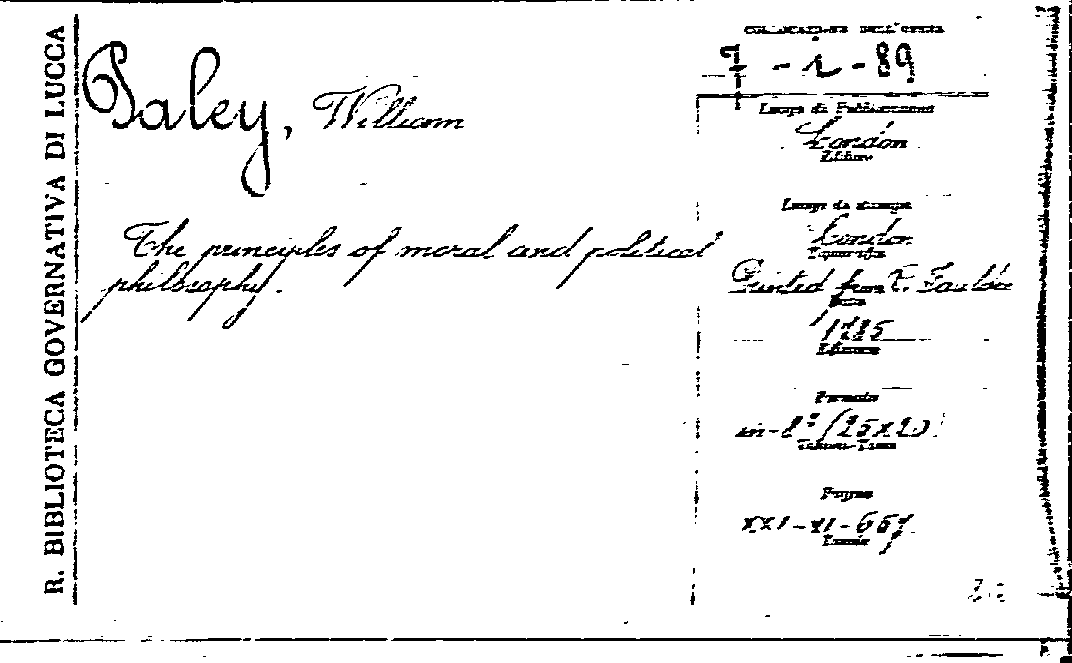 R. BIBLIOTECA GOVERNATIVA DI LUCCA
Paley, William
The principles of moral and political
philosophy.
COLLOCAZIONE DELL'OPERA
7 - i - 89
Luogo di Pubblicazione
London
Editore
Luogo di stampa
London
Tipografia
Printed from R. Faulder
1785
Edizione
Formato
in-8° (25x20)
Pagine
XXI-XI-657